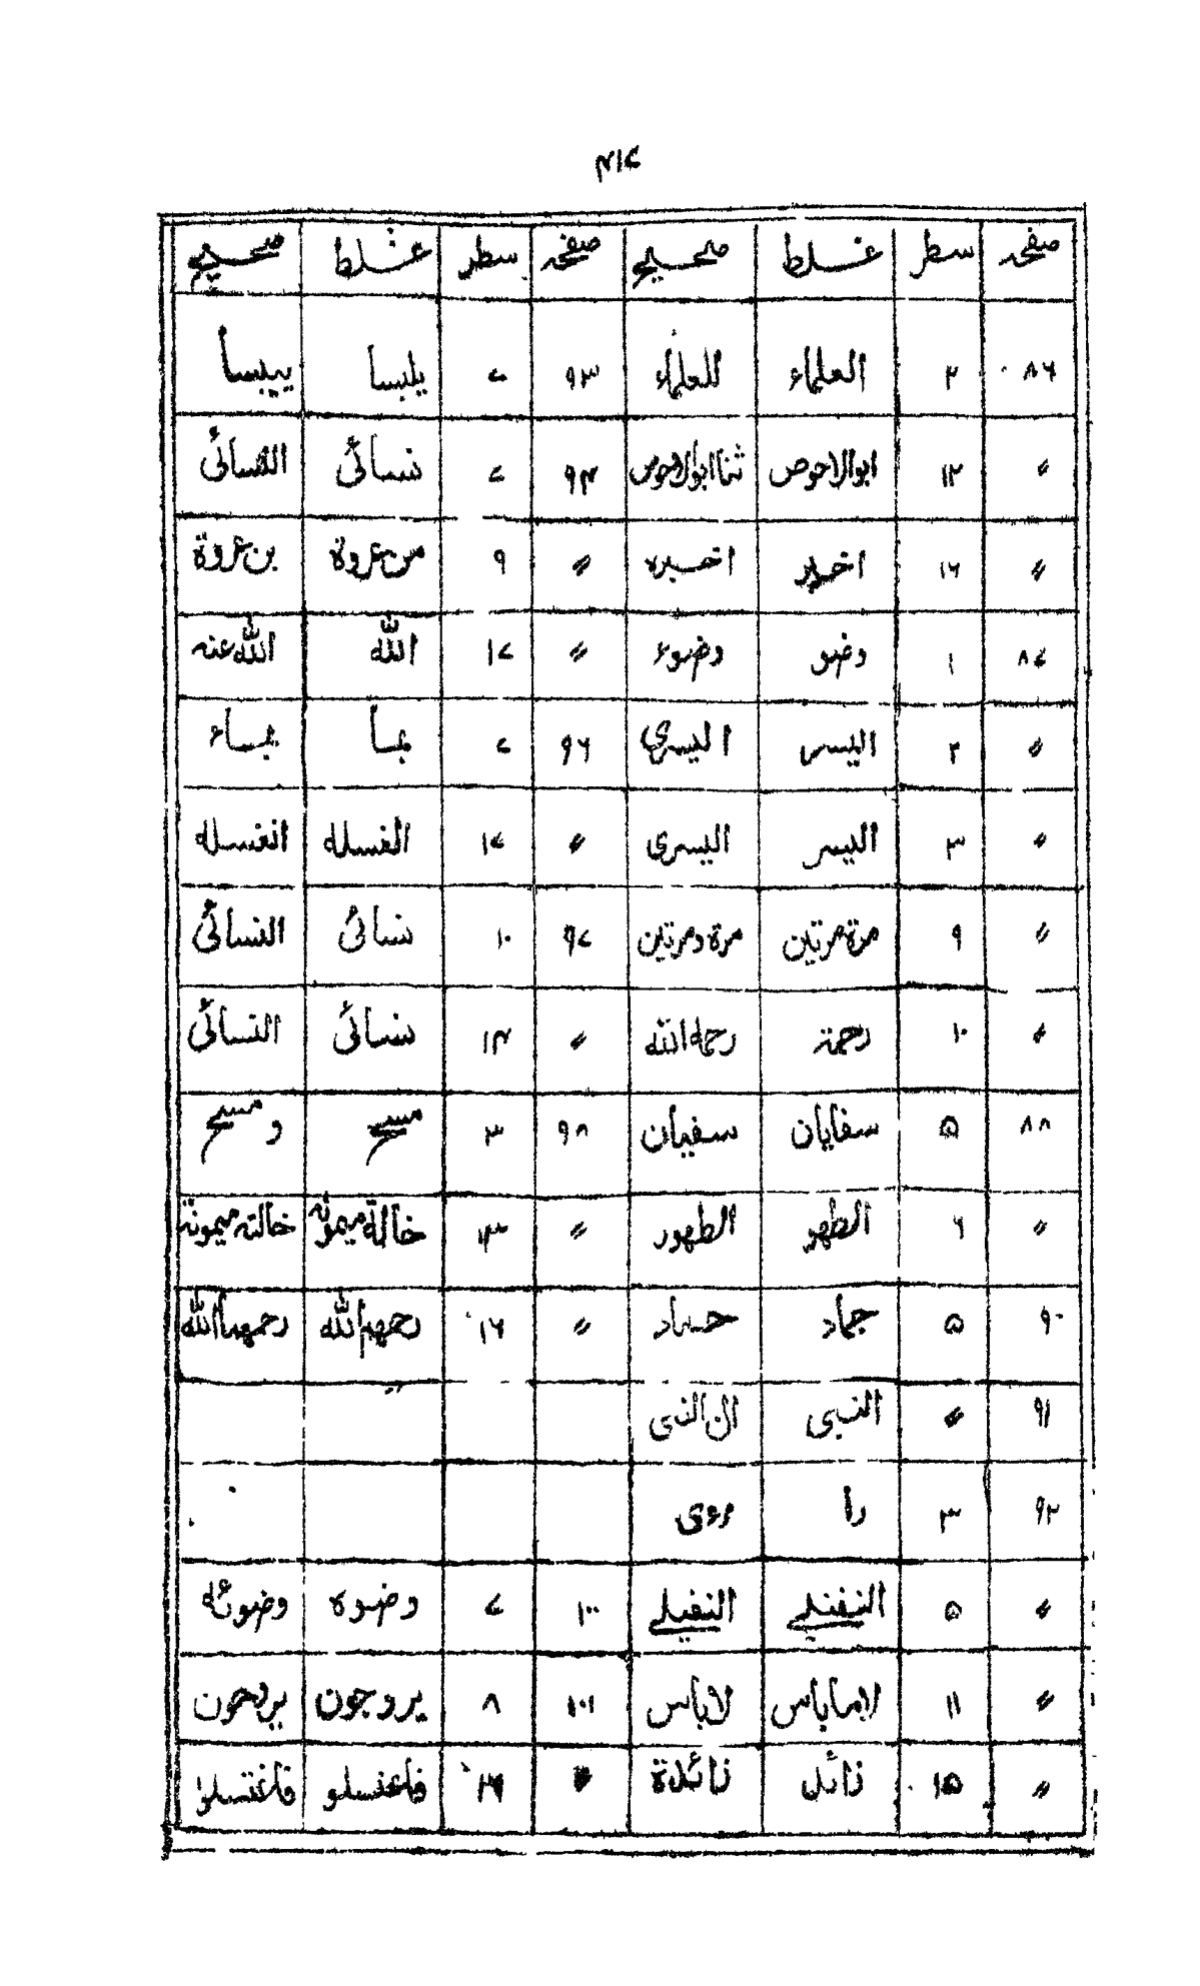 ۴۱۷
صفحہ سطر غلط صحیح صفحہ سطر غلط صحیح
۸۶ ۲ العلماء للعلماء ۹۳ ۷ یلبسا ییبسا
〃 ۱۲ ابوالاحوص ثنا ابوالاحوص ۹۴ ۷ نسائی النسائی
〃 ۱۶ اخبر اخبره 〃 ۹ من عروة بن عروة
۸۷ ۱ وضو وضوء 〃 ۱۷ الله الله عنه
〃 ۲ الیسر الیسری ۹۶ ۷ بما بماء
〃 ۳ الیسر الیسری 〃 ۱۷ الغسله انغسله
〃 ۹ مرة مرتین مرة ومرتین ۹۷ ۱۰ نسائی النسائی
〃 ۱۰ رحمة رحمه الله 〃 ۱۴ نسائی النسائی
۸۸ ۵ سفایان سفیان ۹۸ ۳ مسح ومسح
〃 ۶ الطهو الطهور 〃 ۱۳ خالة میمونة خالته میمونة
۹۰ ۵ جماد حماد 〃 ۱۶ رحمهم الله رحمهما الله
۹۱ 〃 النبی ان النبی
۹۲ ۳ را روی
〃 ۵ النفنلی النفیلی ۱۰۰ ۷ وضوہ وضوئه
〃 ۱۱ لابماباس لاباس ۱۰۱ ۸ یروجون یروحون
〃 ۱۵ زائد زائدة 〃 فاغنسلو فاغتسلوا